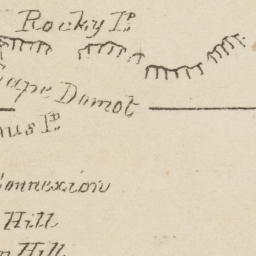 Rocky Pt.
Cape Domot
us Pt.
Connexion
Hill
Hill